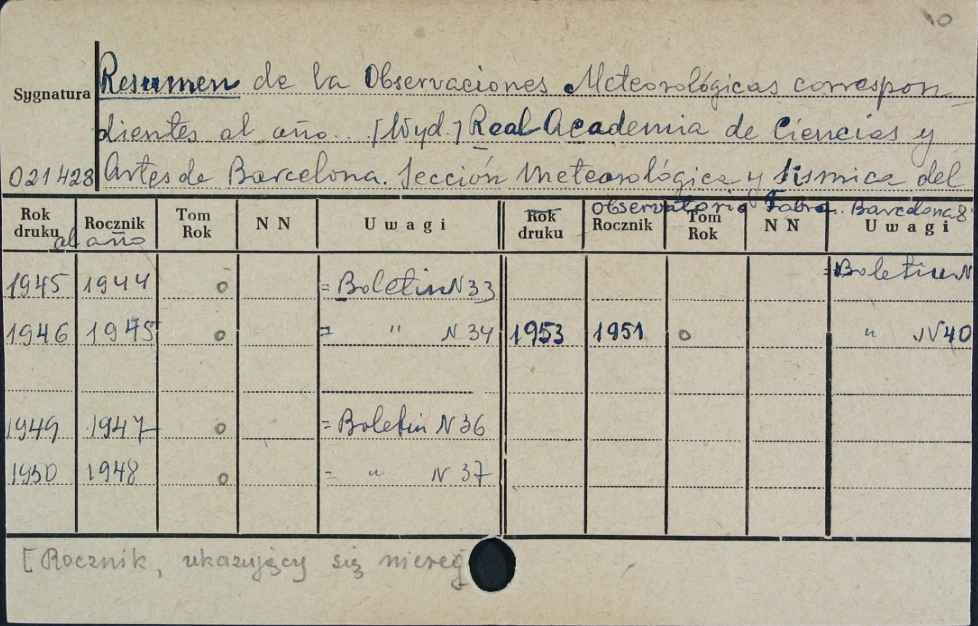 10
Resumen de la Observaciones Meteorológicas correspon-
Sygnatura
dientes al año... [Wyd.] Real Academia de Ciencias y
021428 Artes de Barcelona. Sección Meteorológica y Sismica del
Observatorio Fabra. Barcelona 8
Rok druku Rocznik Tom Rok N N Uwagi Rok druku Rocznik Tom Rok N N Uwagi
al año
= Boletin N
1945 1944 o = Boletin N 33
1946 1945 o = " N 34 1953 1951 o " N 40
1949 1947 o = Boletin N 36
1950 1948 o = " N 37
[Rocznik, ukazujący się niereg